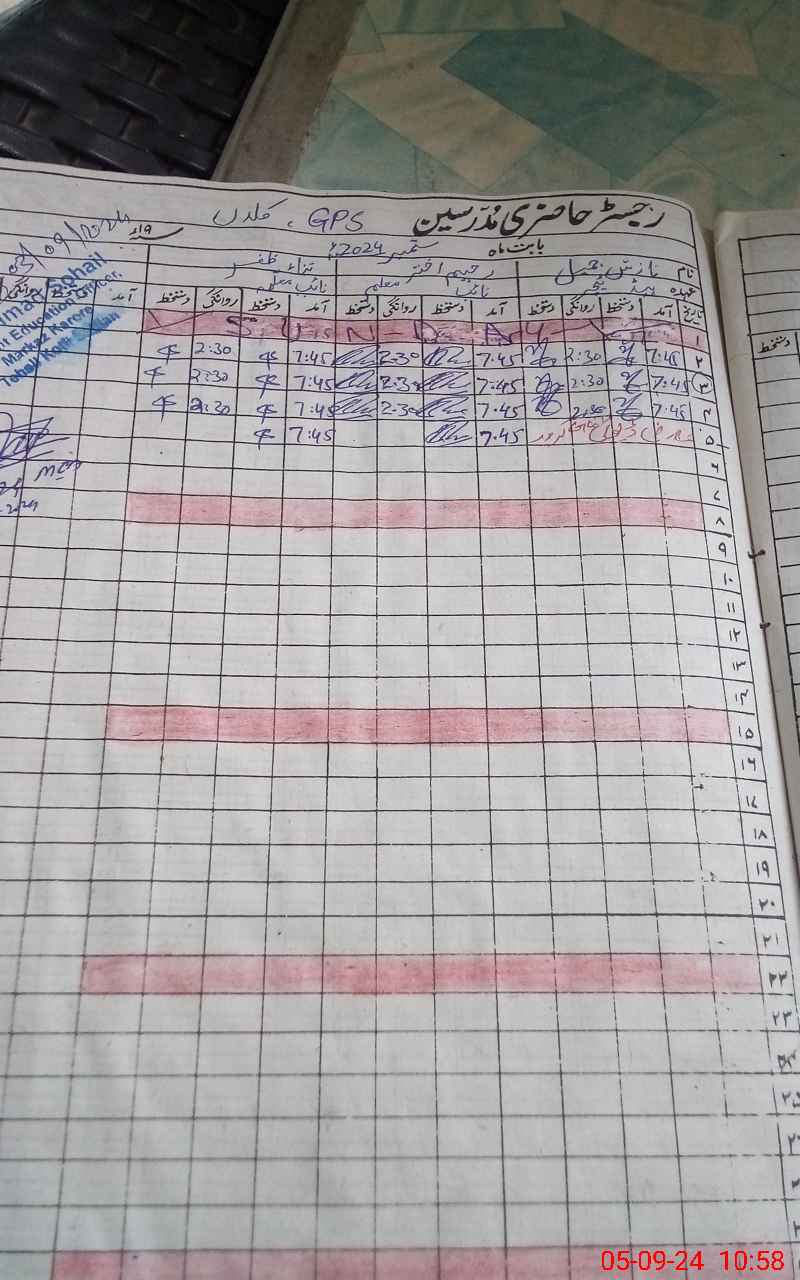 رجسٹر حاضری مُدرسین GPS ، کلدں
بابت ماہ ستمبر 2024ء سنہ ۱۹ء
نام نازش جمیل رحیم اختر ثناء ظفر
عہدہ ہیڈ ٹیچر نائب معلم نائب معلمہ
تاریخ آمد دستخط روانگی دستخط آمد دستخط روانگی دستخط آمد دستخط روانگی دستخط آمد
۱ SUN-DAY
۲ 7:45 2:30 7:45 2:30 7:45 2:30
۳ 7:45 2:30 7:45 2:30 7:45 2:30
۴ 7:45 2:30 7:45 2:30 7:45 2:30
۵ 7:45 7:45
۶
۷
۸
۹
۱۰
۱۱
۱۲
۱۳
۱۴
۱۵
۱۶
۱۷
۱۸
۱۹
۲۰
۲۱
۲۲
۲۳
۲۴
۲۵
Sohail
Education Officer,
Markaz Karore
Tehsil Kotli Sattian
دستخط
05-09-24 10:58